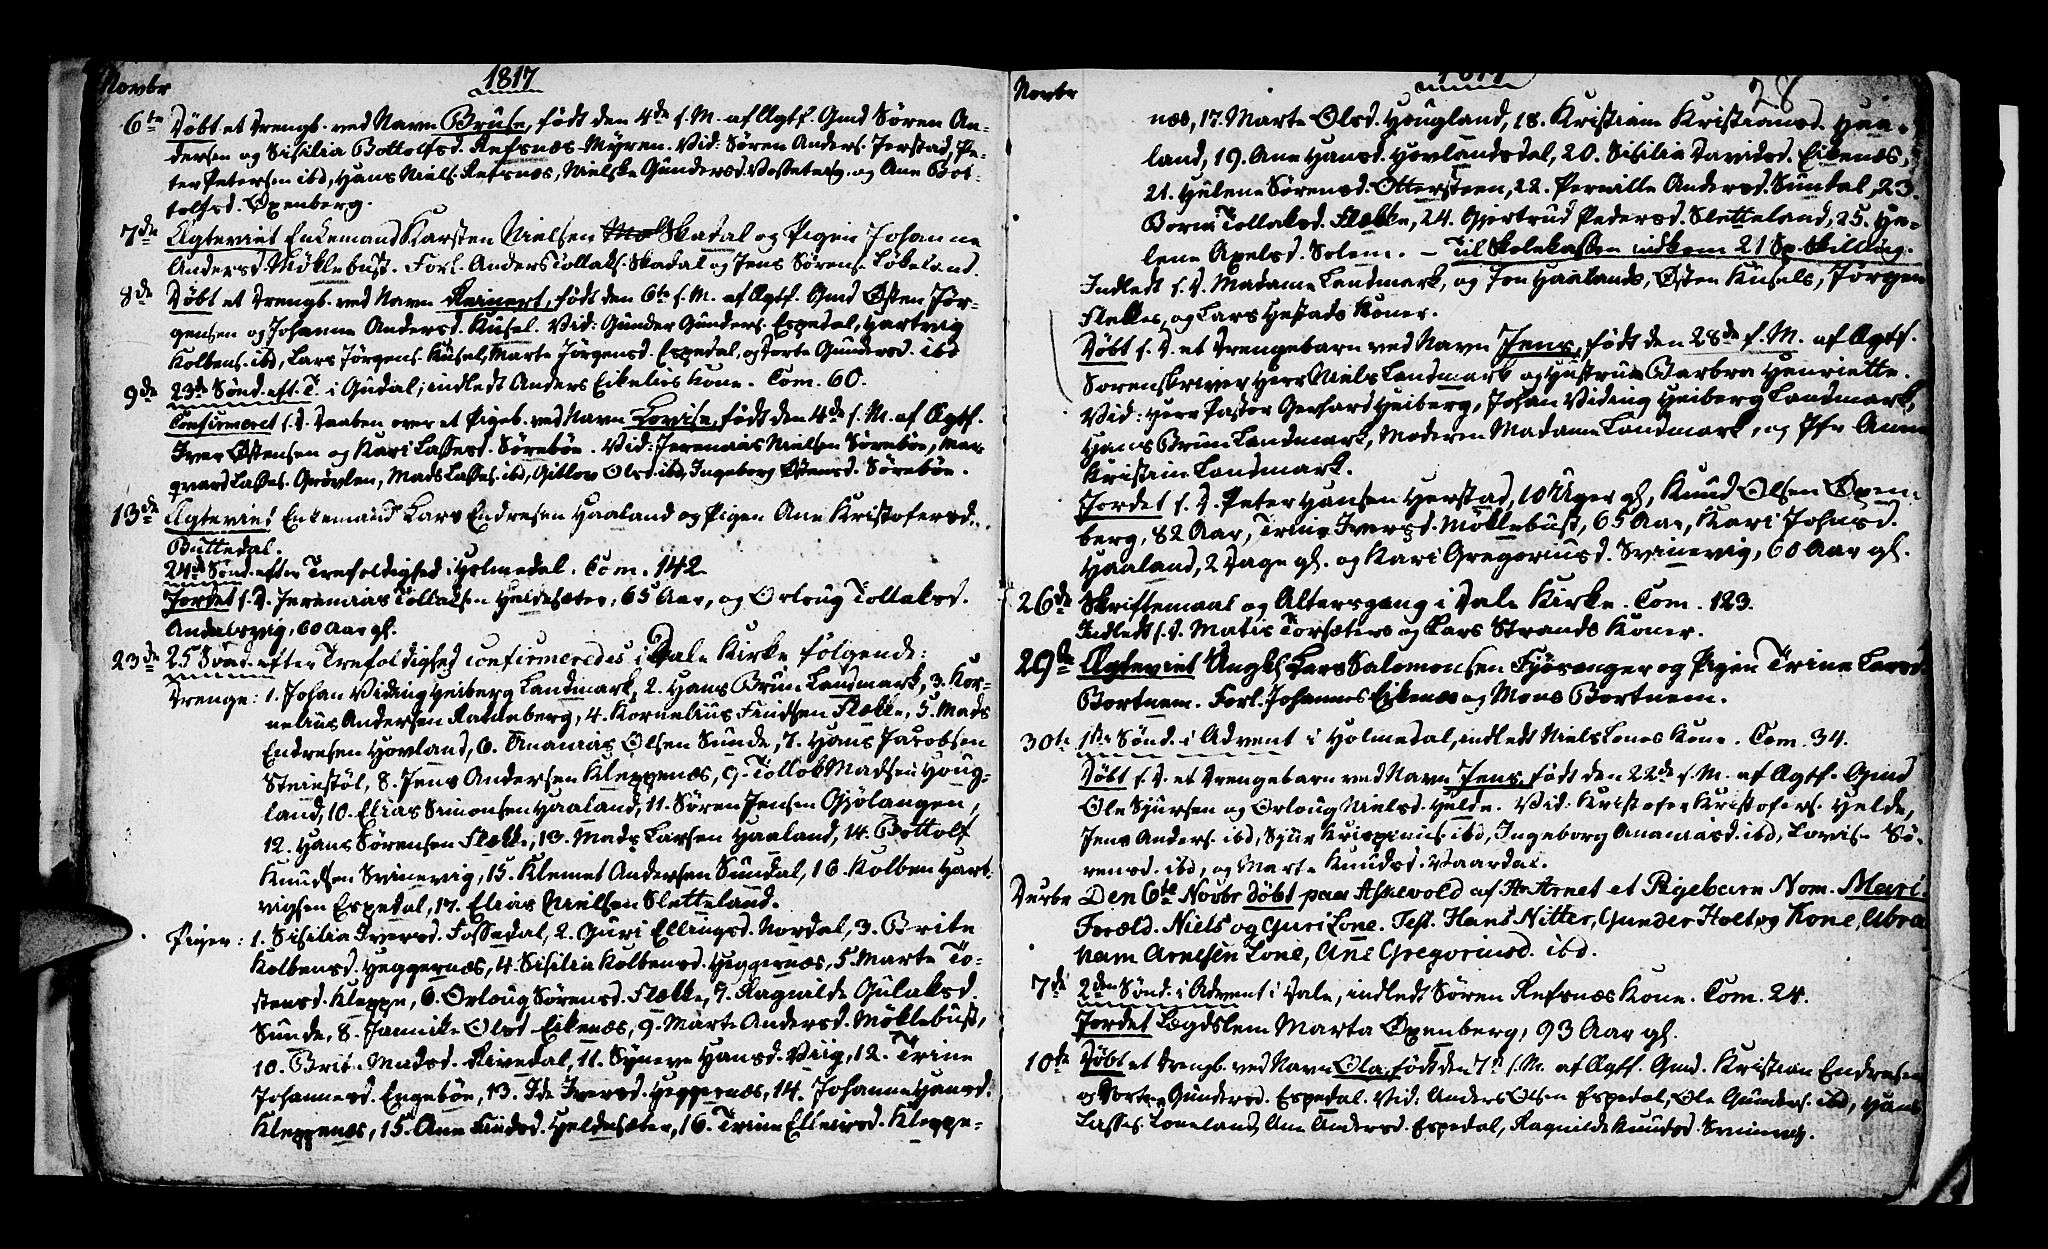 Novbr 1817
6te Døbt et Drengb. ved Navn Bruse, født den 4de s. M. af Ægtf. Gmd Søren An-
dersen og Sisilia Bottolfsd. Refsnæs-Myren. Vid: Søren Anders. Jerstad, Pe-
ter Petersen ibd, Hans Niels. Refsnæs, Nielske Gundersd. og Ane Bot-
tolfsd. Øxenberg.
7de Ægteviet Enkemand Karsten Nielsen Skadal og Pigen Johanne
Andersd. Møklebust. Forl. Anders Tollaks. Skadal og Jens Sørens. Løkeland.
8de Døbt et Drengb. ved Navn Reinert, født den 6te s. M. af Ægtf. Gmd Østen Jør-
gensen og Johanne Andersd. Küsel. Vid: Gunder Gunders. Espedal, Hartvig
Kolbens. ibd, Lars Jørgens. Küsel, Marte Jørgensd. Espedal, og Dorte Gundersd. ibd
9de 23de Sønd. eft. T. i Guddal, indledt Anders Eikelies Kone. Com. 60.
Confirmeret s. D. Daaben over et Pigeb. ved Navn Lovise, født den 4de s. M. af Ægtf.
Iver Østensen og Kari Lassesd. Sørebøe. Vid: Jeremias Nielsen Sørebøe, Mar-
qvard Lasses. Grøvlen, Mads Lasses. ibd, Gitlov Olsd. ibd, Ingeborg Østensd. Sørebøe.
13de Ægteviet Enkemand Lars Endresen Haaland og Pigen Ane Kristofersd.
Buttedal.
24de Sønd. efter Trefoldighed i Holmedal. Com. 142
Jordet s. D. Jeremias Tollaksen Heldesæter, 65 Aar, og Orloug Tollaksd.
Andalsvig, 60 Aar gl.
23de 25 Sønd. efter Trefoldighed confirmeredes i Dale Kirke følgende:
Drenge: 1. Johan Viding Heiberg Landmark, 2. Hans Brun Landmark, 3. Kor-
nelius Andersen Ramleberg, 4. Kornelius Findsen Flække, 5. Mads
Endresen Hovland, 6. Ananias Olsen Sunde, 7. Hans Jacobsen
Steinstøl, 8. Jens Andersen Kleppenæs, 9. Tollok Madsen Houg-
land, 10. Elias Simonsen Haaland, 11. Søren Jensen Gjølangen,
12. Hans Sørensen Flække, 13. Mads Larsen Haaland, 14. Bottolf
Knudsen Svinevig, 15. Klemet Andersen Sundal, 16. Kolben Hart-
vigsen Espedal, 17. Elias Nielsen Sletteland.
Piger: 1. Sisilia Iversd. Fossedal, 2. Guri Ellingsd. Nordal, 3. Brite
Kolbensd. Heggernæs, 4. Sisilia Kolbensd. Heggernæs, 5. Marte To-
stensd. Kleppe, 6. Orloug Sørensd. Flække, 7. Ragnilde Gulaksd.
Sunde, 8. Jannike Olsd. Eikenæs, 9. Marte Andersd. Møklebust,
10. Brite Madsd. Rivedal, 11. Syneve Hansd. Viig, 12. Trine
Johannesd. Engebøe, 13. Ide Iversd. Heggernæs, 14. Johanne Hansd.
Kleppenæs, 15. Ane Findsd. Heldesæter, 16. Trine Ellevsd. Kleppe-
Novbr 1817 28
næs, 17. Marte Olsd. Hougland, 18. Kristiane Kristiansd. Haa-
land, 19. Ane Hansd. Hovlandsdal, 20. Sisilia Davidsd. Eikenæs,
21. Helene Sørensd. Ottersteen, 22. Pernille Andersd. Sundal, 23.
Borni Tollaksd. Flække, 24. Gjertrud Pedersd. Sletteland, 25. He-
lene Axelsd. Solem. - Til Skolekassen indkom 21 Sp. Skilling.
Indledt s. D. Madame Landmark, og Jon Haalands, Østen Küsels, Jørgen
Flekkes, og Lars Hestads Koner.
Døbt s. D. et Drengebarn ved Navn Jens, født den 28de f. M. af Ægtf.
Sorenskriver Herr Niels Landmark og Hustrue Barbra Henriette.
Vid: Herr Pastor Gerhard Heiberg, Johan Viding Heiberg Landmark,
Hans Brun Landmark, Moderen Madame Landmark, og Jfr Anne
Kristine Landmark.
Jordet s. D. Peter Hansen Herstad, 10 Uger gl, Knud Olsen Øxen-
berg, 82 Aar, Trine Iversd. Møklebust, 65 Aar, Kari Johnsd.
Haaland, 2 Dage gl. og Kari Gregoriusd. Svinevig, 60 Aar gl.
26de Skriftemaal og Altersgang i Dale Kirke. Com. 123.
Indledt s. D. Matis Torsæters og Lars Strands Koner.
29de Ægteviet Ungkl Lars Salomonsen Fyøsanger og Pigen Trine Larsd.
Bortnem. Forl. Johannes Eikenæs og Mons Bortnem.
30te 1ste Sønd. i Advent i Holmedal, indledt Niels Lones Kone. Com. 34.
Døbt s. D. et Drengebarn ved Navn Jens, født den 22de s. M. af Ægtf. Gmd
Ole Sjursen og Orloug Nielsd. Helde. Vid: Kristofer Kristofers. Helde,
Jens Anders. ibd, Sjur Krispinus. ibd, Ingeborg Ananiasd. ibd, Lovise Sø-
rensd. ibd, og Marte Knudsd. Vaardal.
Decbr Den 6te Novbr døbt paa Askevold af Hr Arnet et Pigebarn Nom. Mari.
Foræld. Niels og Guri Lone. Test. Hans Nitter, Gunder Holt og Kone, Abra
ham Arnesen Lone, Ane Gregoriusd. ibd.
7de 2den Sønd. i Advent i Dale, indledt Søren Refsnæs Kone. Com. 24.
Jordet Lægdslem Marta Øxenberg, 93 Aar gl.
10de Døbt et Drengb. ved Navn Ola, født den 7de s. M. af Ægtf. Gmd. Kristian Endresen
og Dorte Gundersd. Espedal. Vid: Anders Olsen Espedal, Ole Gunders. ibd, Hans
Lasses. Loneland, Ane Andersd. Espedal, Ragnilde Knudsd. Svinevig.